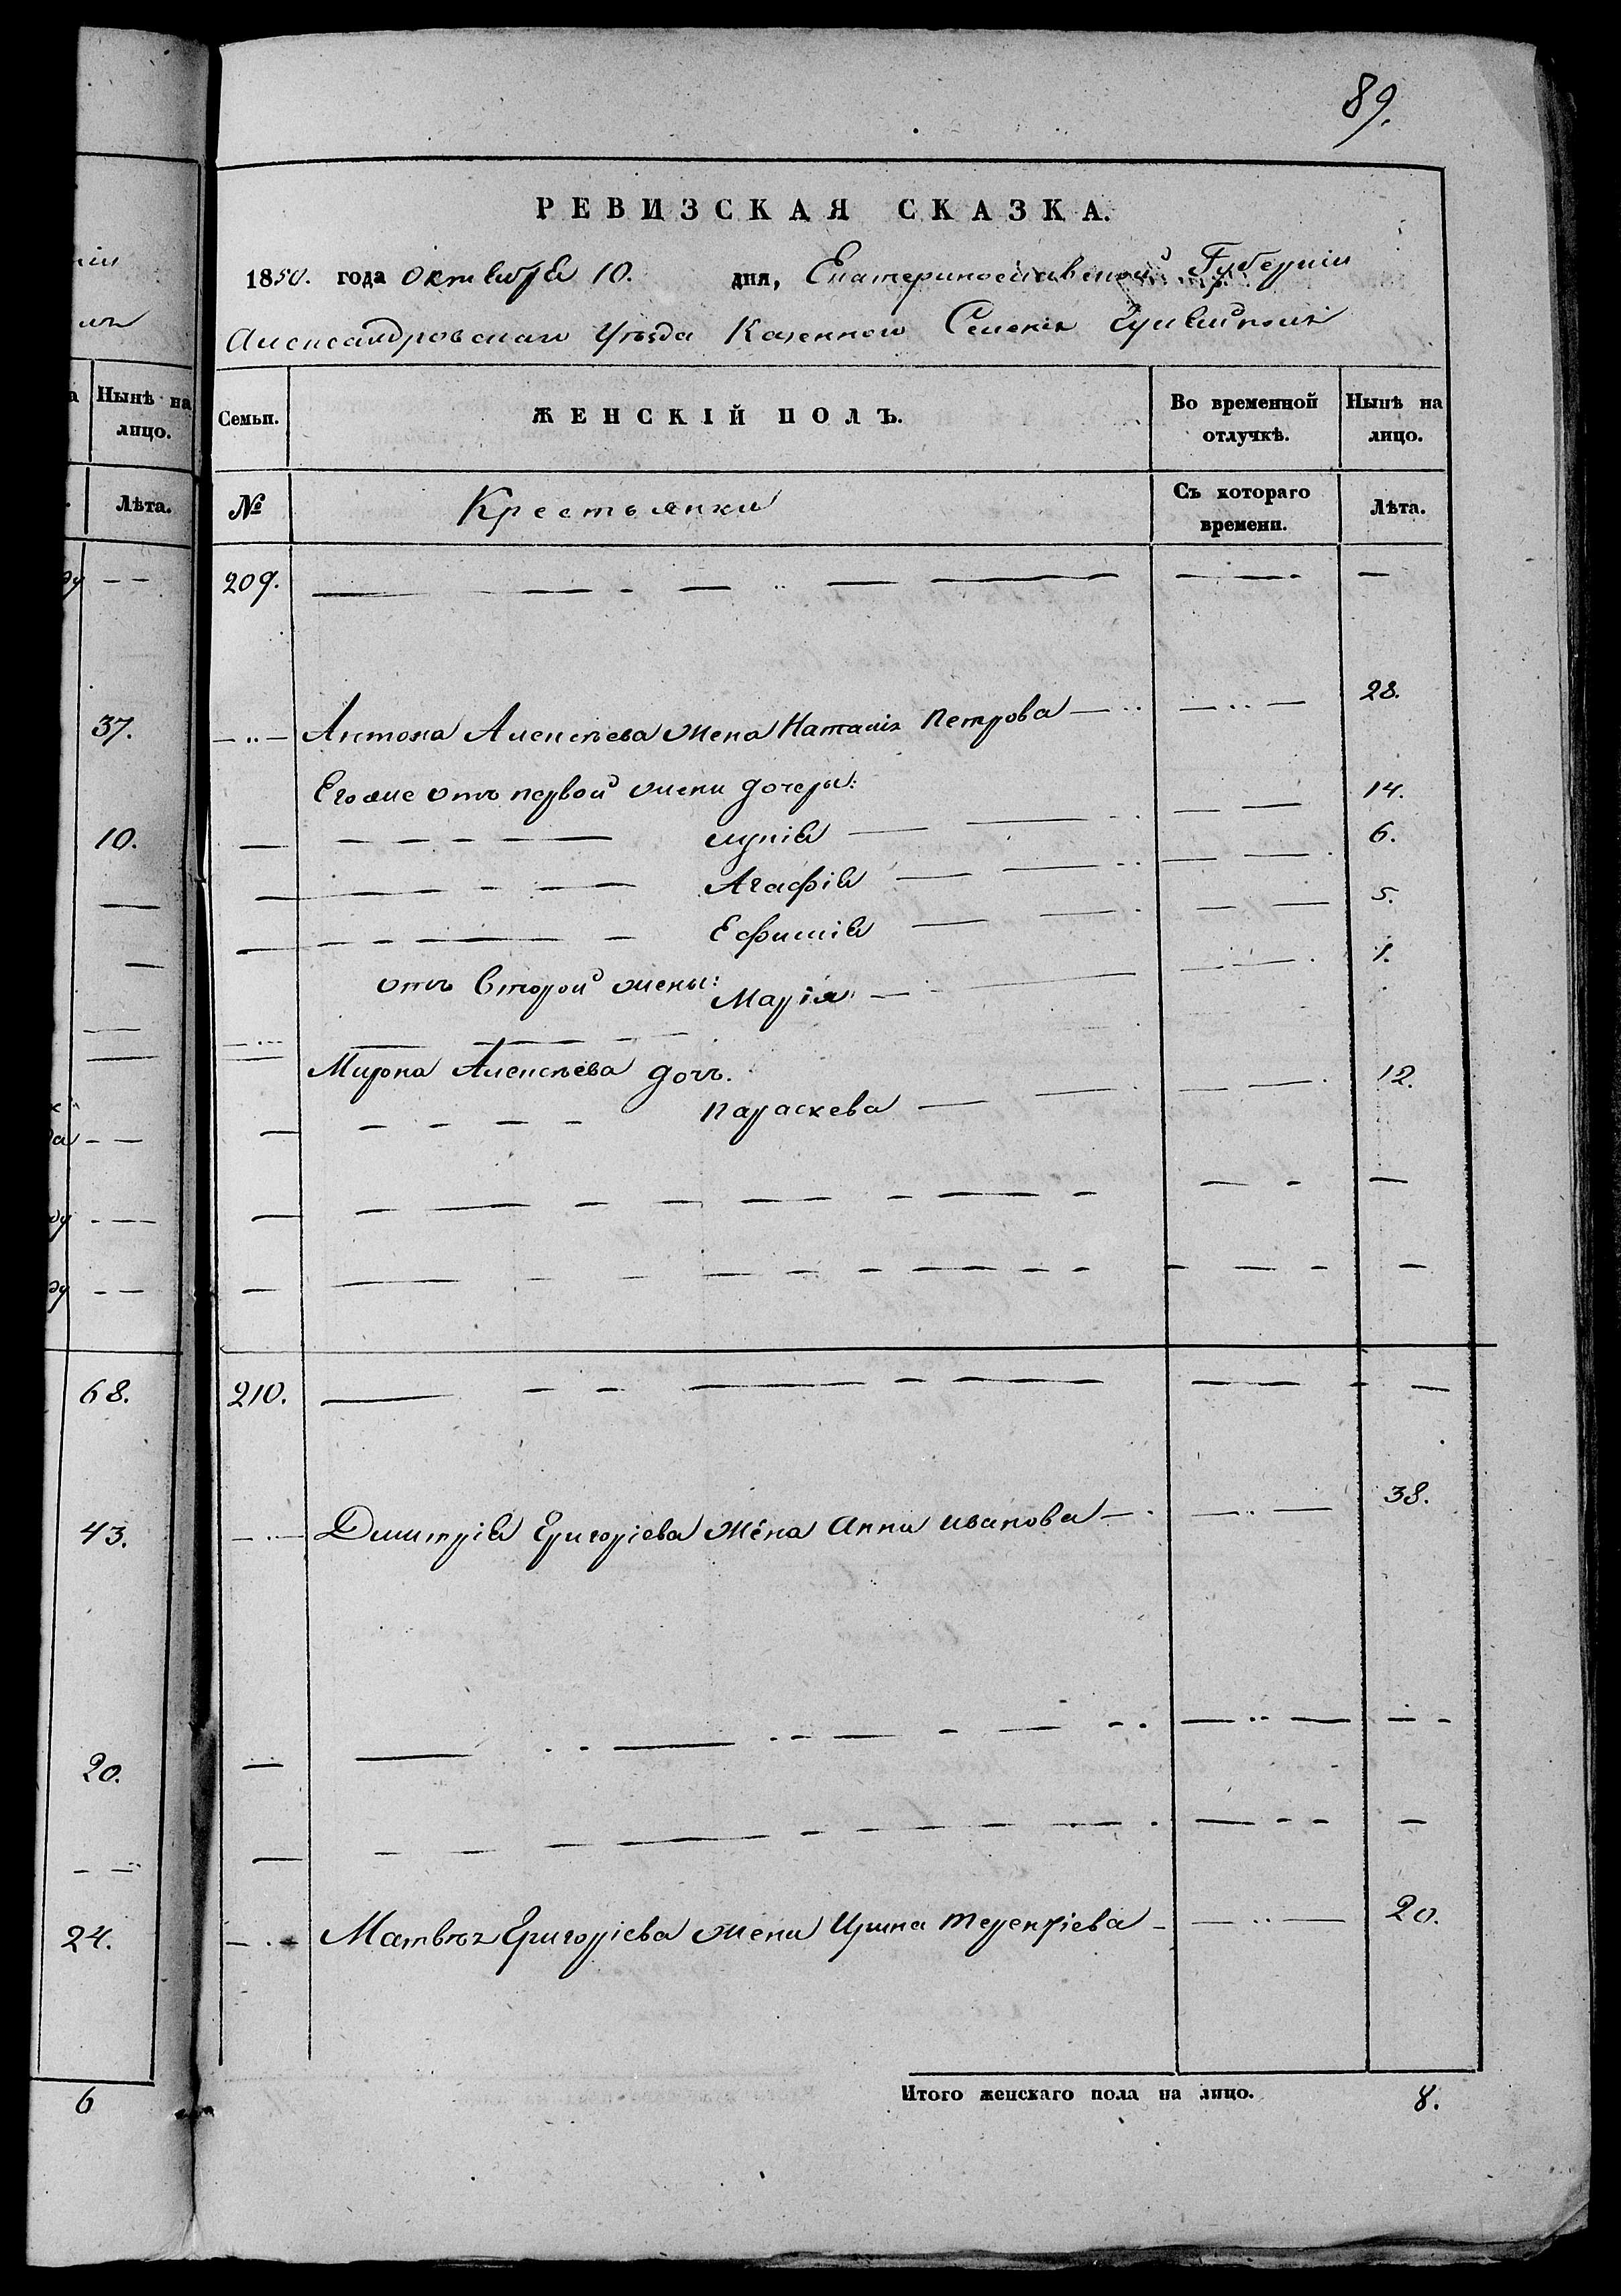 89.
РЕВИЗСКАЯ СКАЗКА.
1850. года октября 10. дня, Екатеринославской Губернии
Александровскаго Уѣзда Казеннаго Селенія Гуляйполя
Семьи.
ЖЕНСКІЙ ПОЛЪ.
Во временной отлучкѣ.
Нынѣ на лицо.
№
Крестьянки
Съ котораго времени.
Лѣта.
209.
Антона Алексѣева жена Наталія Петрова 28.
Егоже отъ первой жены дочери:
14.
Агафія 6.
Ефимія 5.
отъ второй жены: Марія 1.
Мирона Алексѣева дочь
Параскева 12.
210.
Дмитрія Григоріева жена Анна Иванова 38.
Матвѣя Григоріева жена Ирина Терентіева 20.
Итого женскаго пола на лицо. 8.
Нынѣ на лицо.
Лѣта.
37.
10.
68.
43.
20.
24.
6